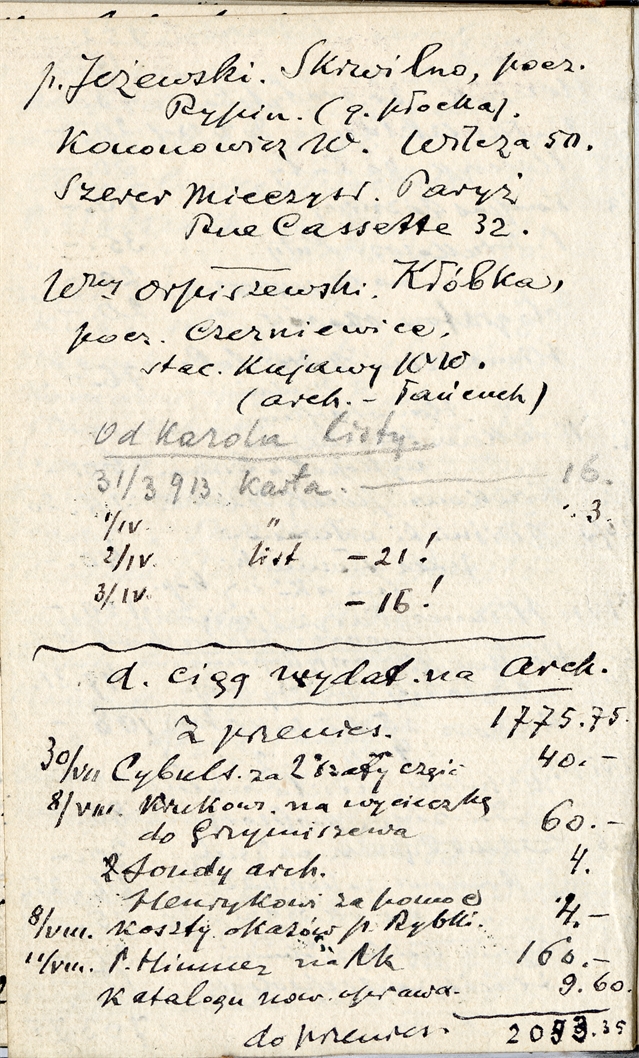 p. Jeżewski. Skrwilno, pocz.
Rypin. (g. płocka).
Kononowicz W. Wilcza 50.
Szerer Mieczysł. Paryż
Rue Cassette 32.
Wny Orpiszewski. Kłóbka,
pocz. Czerniewice,
stac. Kujawy WW.
(arch. - Łańcuch)
Od Karola listy.
31/3 913. Karta. — 16.
1/IV. " 3.
2/IV. list - 21!
3/IV. - 16!
d. ciąg wydat. na Arch.
Z przenies. 1775.75.
30/VII Cybuls. za 2 szafy część 40.-
8/VIII. Krukow. na wycieczkę
do Grzymiszewa 60.-
2 sondy arch. 4.
Henrykowi za pomoc
8/VIII. koszty okazów p. Rybki. 4.-
11/VIII. P. Himmer na Rk 160.-
Katalogu now. oprawa. 9.60.
do przenies. 2053.35